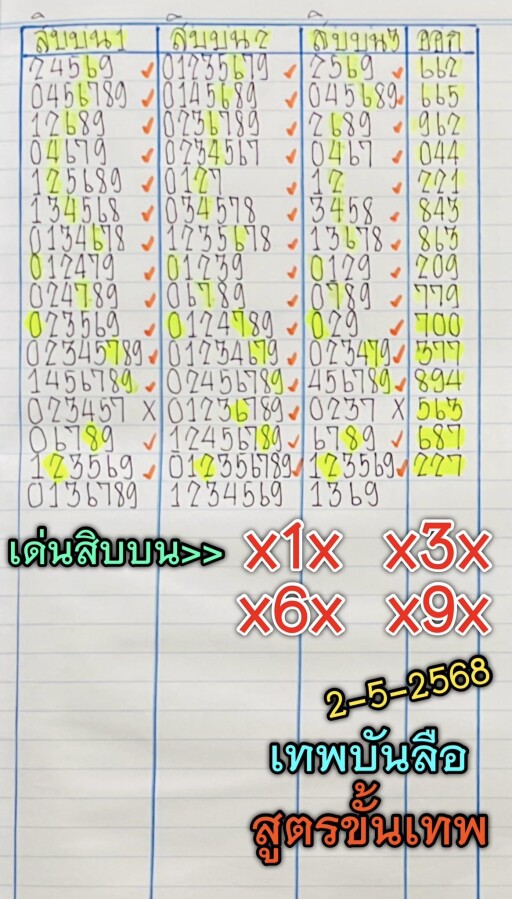 สิบบน1 สิบบน2 สิบบน3 ออก
24569 ✓ 01235679 ✓ 2569 ✓ 662
0456789 ✓ 0145689 ✓ 045689 ✓ 665
12689 ✓ 0236789 ✓ 2689 ✓ 962
04679 ✓ 0234567 ✓ 0467 ✓ 044
125689 ✓ 0127 ✓ 12 ✓ 221
134568 ✓ 034578 ✓ 3458 ✓ 843
0134678 ✓ 1235678 ✓ 13678 ✓ 863
012479 ✓ 01239 ✓ 0129 ✓ 209
024789 ✓ 06789 ✓ 0789 ✓ 779
023569 ✓ 0124789 ✓ 029 ✓ 700
02345789 ✓ 01234679 ✓ 023479 ✓ 577
1456789 ✓ 02456789 ✓ 456789 ✓ 894
023457 X 01236789 ✓ 0237 X 563
06789 ✓ 12456789 ✓ 6789 ✓ 687
123569 ✓ 012356789 ✓ 123569 ✓ 227
0136789 1234569 1369
เด่นสิบบน>> x1x x3x
x6x x9x
2-5-2568
เทพบันลือ
สูตรขั้นเทพ